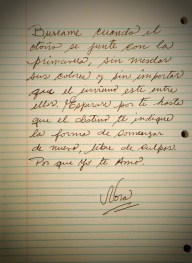 Buscame cuando el
otoño se junte con la
primavera, sin mesclar
sus colores y sin importar
que el invierno este entre
ellos. Esperare por ti hasta
que el destino te indique
la forma de comenzar
de nuevo, libre de culpas
Por que Yo te Amo.